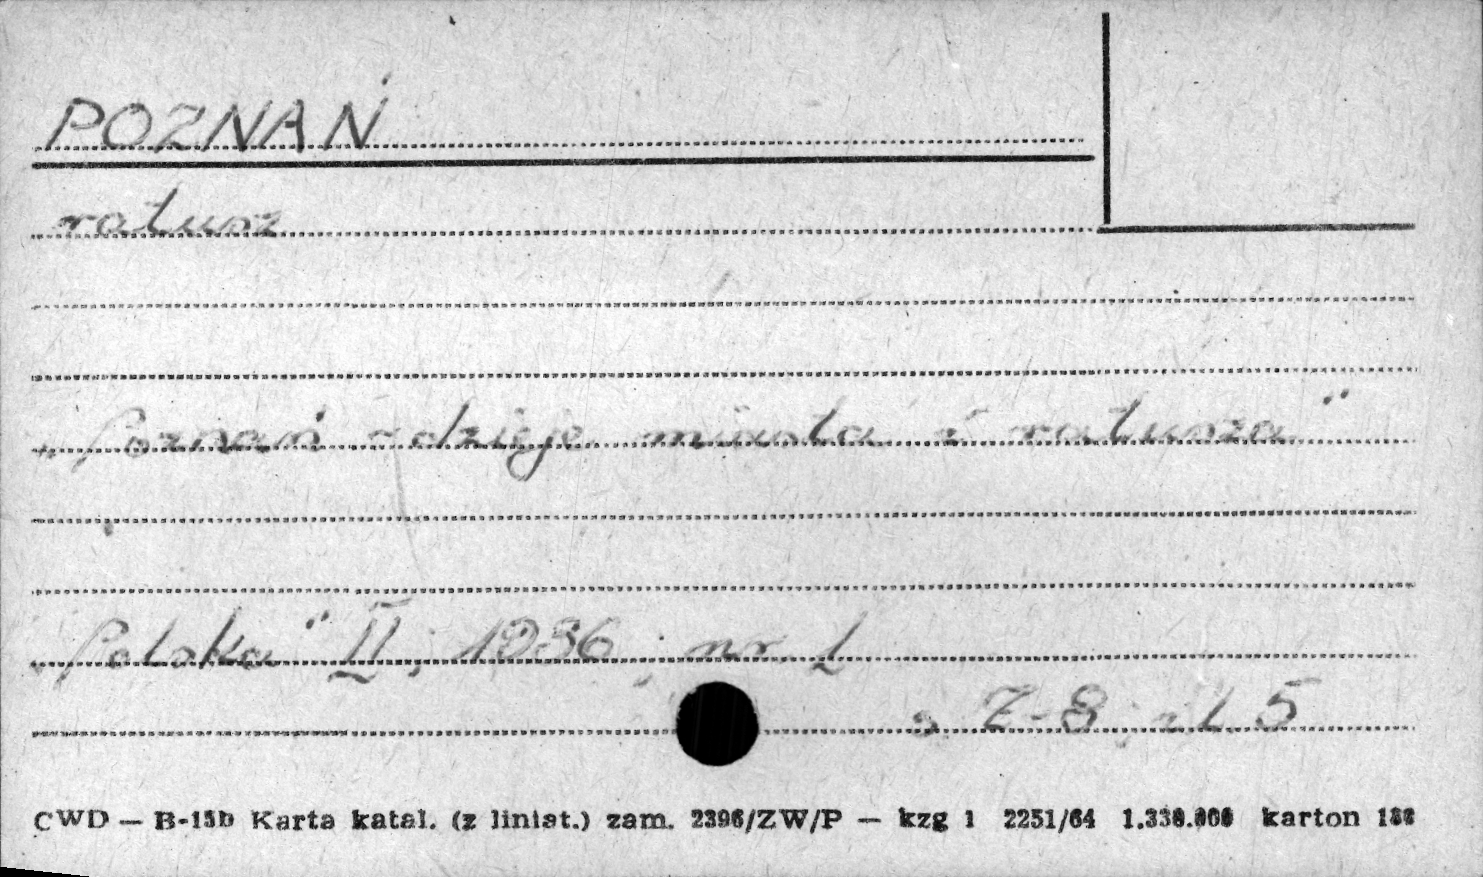 POZNAŃ
ratusz
„Poznań dzieje miasta i ratusza”
„Polska” II, 1936, nr 1
s. 7-8, il. 5
CWD — B-15b Karta katal. (z liniat.) zam. 2396/ZW/P — kzg 1 2251/64 karton